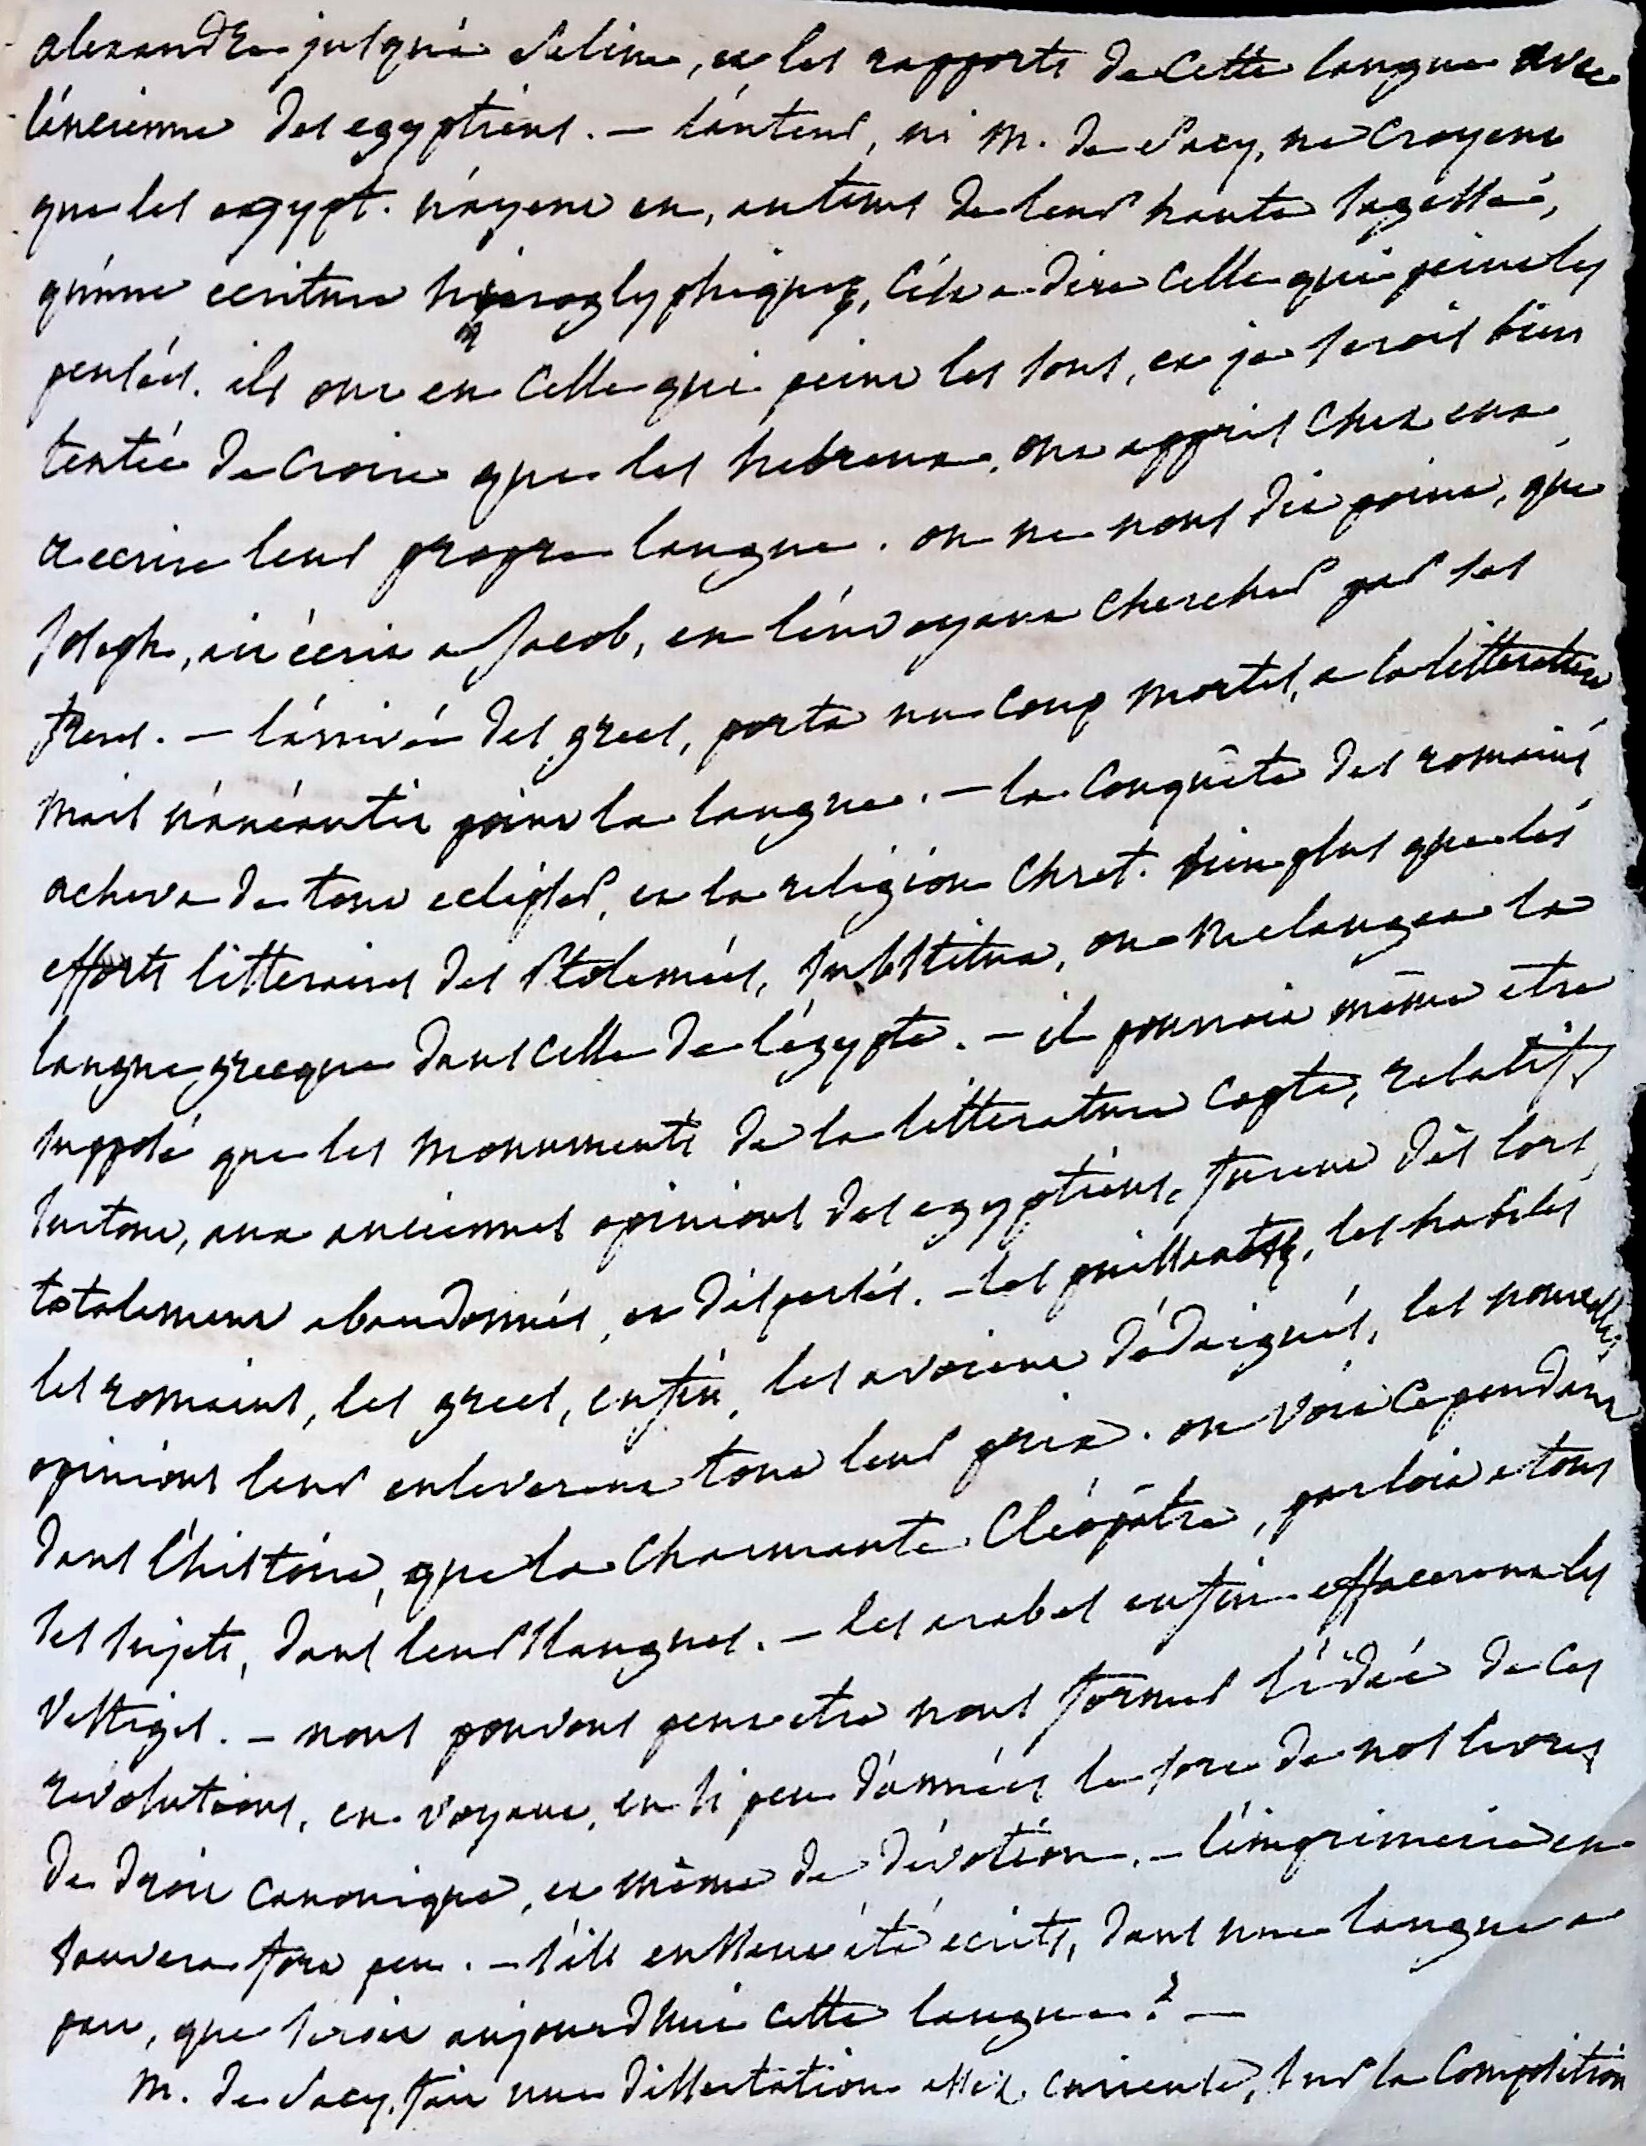 alexandre jusqu'à Selim, et les rapports de cette langue avec
l'ancienne des egyptiens. — l'auteur, ni M. de Sacy, ne croyent
que les egypt. n'ayent eu, au tems de leur haute sagesse,
qu'une ecriture hieroglyphique, c'est a dire celle qui peint les
pensées. ils ont eu celle qui peint les sons, et je serois bien
tentée de croire que les hebreux, ont appris chez eux
a ecrire leur propre langue. on ne nous dit point, que
Joseph, ait écrit a Jacob, en l'envoyant chercher par ses
freres. — l'arrivée des grecs, porta un coup mortel, a la litterature
mais n'anéantit point la langue. — la conquête des romains
acheva de tout eclipser, et la religion chret. bien plus que les
efforts litteraires des Ptolemées, substitua, ou melangea la
langue grecque dans celle de l'égypte. — il pourroit même etre
supposé que les monuments de la litterature copte, relatifs
surtout, aux anciennes opinions des egyptiens, furent dès lors,
totalement abandonnés, et dispersés. — les puissants, les habiles
les romains, les grecs, enfin, les avoient dédaignés, les nouvelles
opinions leur enleverent tout leur prix. on voit cependant
dans l'histoire, que la charmante Cléopâtre, parloit a tous
ses sujets, dans leurs langues. — les arabes enfin effacerent les
vestiges. — nous pouvons peut etre nous former l'idée de ces
revolutions, en voyant, en si peu d'années le sort de nos livres
de droit canonique, et même de dévotion. — l'imprimerie en
sauvera fort peu. — s'ils eussent été ecrits, dans une langue a
part, que seroit aujourd'hui cette langue? —
M. de Sacy, fait une dissertation assez curieuse, sur la composition